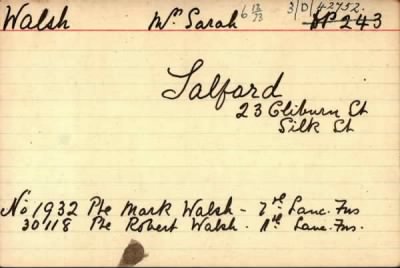 Walsh Mrs Sarah 6 12/73 3/D/42752. SP 243
Salford
23 Cliburn St
Silk St
No 1932 Pte Mark Walsh - 7th Lanc. Fus
30118 Pte Robert Walsh. 1st Lanc. Fus.